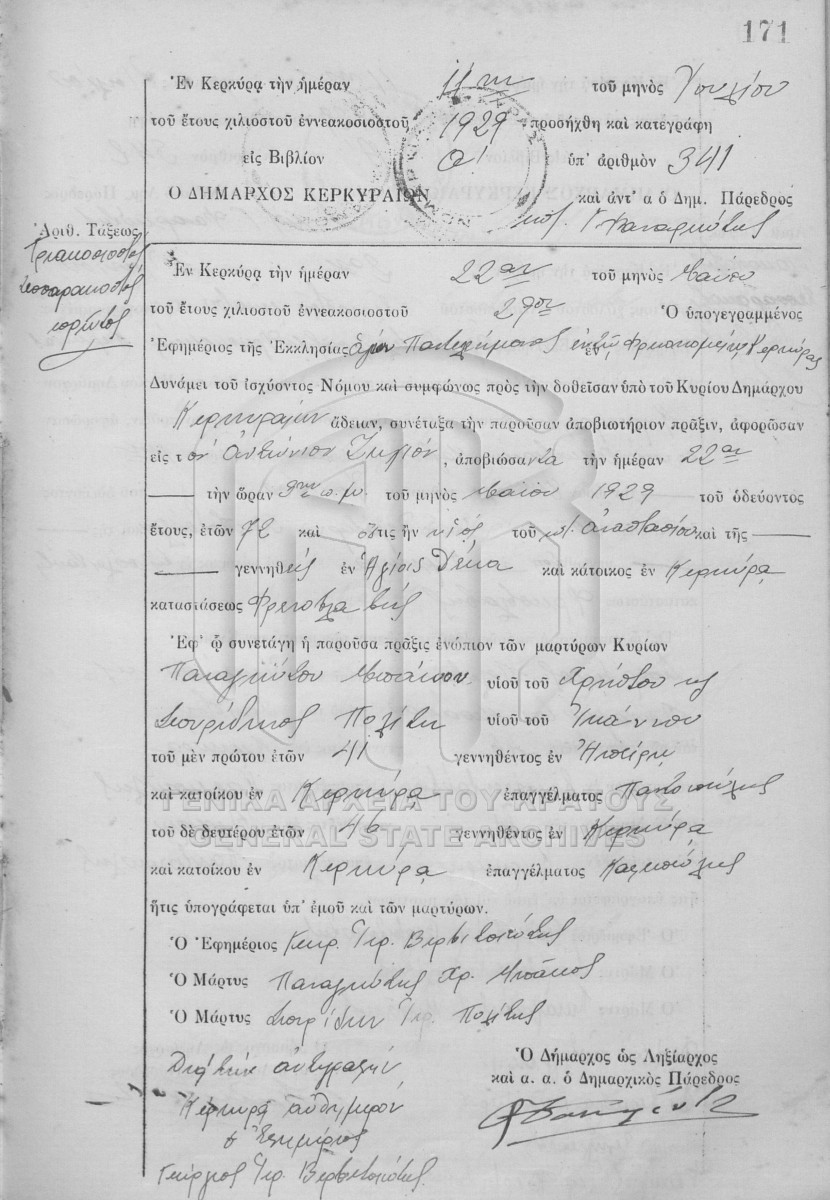 171
Ἐν Κερκύρᾳ τὴν ἡμέραν 11ην τοῦ μηνὸς Ἰουλίου
τοῦ ἔτους χιλιοστοῦ ἐννεακοσιοστοῦ 1929 προσήχθη καὶ κατεγράφη
εἰς Βιβλίον α' ὑπ' ἀριθμὸν 341
Ο ΔΗΜΑΡΧΟΣ ΚΕΡΚΥΡΑΙΩΝ καὶ ἀντ' α ὁ Δημ. Πάρεδρος
Ἀριθ. Τάξεως
Τριακοσιοστὸς
τεσσαρακοστὸς
πρῶτος
Ἐν Κερκύρᾳ τὴν ἡμέραν 22αν τοῦ μηνὸς Μαΐου
τοῦ ἔτους χιλιοστοῦ ἐννεακοσιοστοῦ 29ου Ὁ ὑπογεγραμμένος
Ἐφημέριος τῆς Ἐκκλησίας Ἁγίου Παντελεήμονος ἐν Κερκύρας
Δυνάμει τοῦ ἰσχύοντος Νόμου καὶ συμφώνως πρὸς τὴν δοθεῖσαν ὑπὸ τοῦ Κυρίου Δημάρχου
Κερκυραίων ἄδειαν, συνέταξα τὴν παροῦσαν ἀποβιωτήριον πρᾶξιν, ἀφορῶσαν
εἰς τὸν Ἀντώνιον, ἀποβιώσαντα τὴν ἡμέραν 22αν
τὴν ὥραν 9ην π.μ. τοῦ μηνὸς Μαΐου 1929 τοῦ ὁδεύοντος
ἔτους, ἐτῶν 72 καὶ ὅστις ἦν υἱὸς τοῦ Ἀναστασίου καὶ τῆς
γεννηθεὶς ἐν Ἁγίοις Δέκα καὶ κάτοικος ἐν Κερκύρᾳ
καταστάσεως
Ἐφ' ᾧ συνετάγη ἡ παροῦσα πρᾶξις ἐνώπιον τῶν μαρτύρων Κυρίων
Παναγιώτου Μπάκου υἱοῦ τοῦ Χρήστου κ
Σπυρίδωνος Πολίτη υἱοῦ τοῦ Ἰωάννου
τοῦ μὲν πρώτου ἐτῶν 41 γεννηθέντος ἐν Ἠπείρῳ
καὶ κατοίκου ἐν Κερκύρᾳ ἐπαγγέλματος Παντοπώλης
τοῦ δὲ δευτέρου ἐτῶν 46 γεννηθέντος ἐν Κερκύρᾳ
καὶ κατοίκου ἐν Κερκύρᾳ ἐπαγγέλματος
ἥτις ὑπογράφεται ὑπ' ἐμοῦ καὶ τῶν μαρτύρων.
Ὁ Ἐφημέριος Γεώρ. Ἱερ.
Ὁ Μάρτυς Παναγιώτης Χρ. Μπάκος
Ὁ Μάρτυς Σπυρίδων Ἰω. Πολίτης
Ὁ Δήμαρχος ὡς Ληξίαρχος
καὶ α. α. ὁ Δημαρχικὸς Πάρεδρος
Διὰ τὴν ἀντιγραφὴν
Κέρκυρα αὐθημερὸν
ὁ Ἐφημέριος
Γεώργιος Ἱερ.
ΓΕΝΙΚΑ ΑΡΧΕΙΑ ΤΟΥ ΚΡΑΤΟΥΣ
GENERAL STATE ARCHIVES